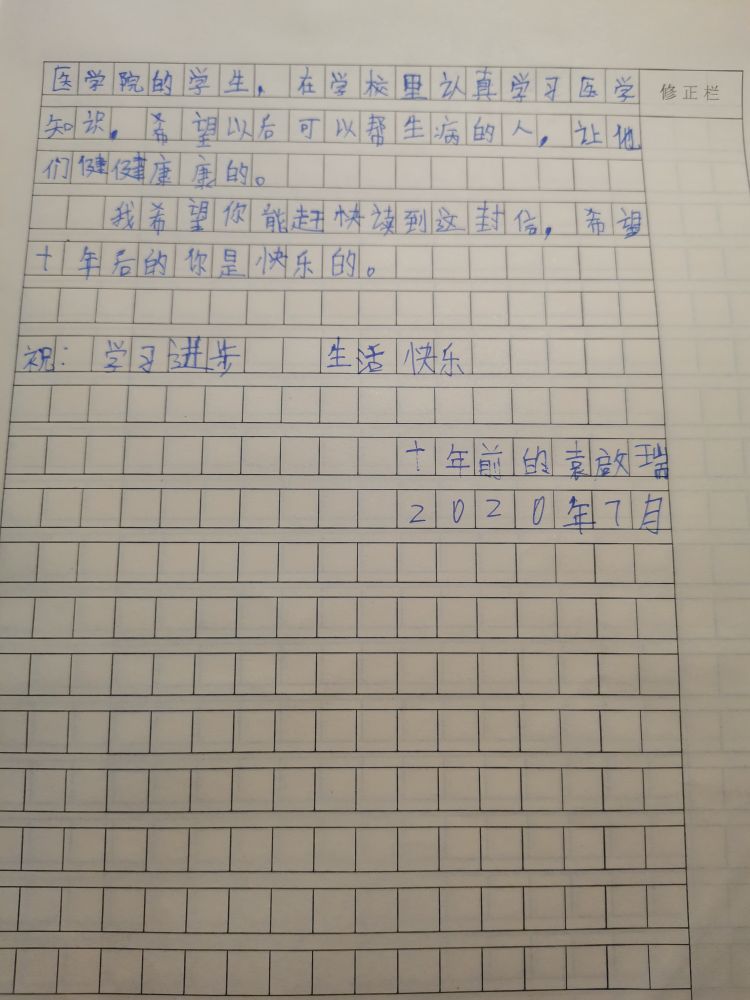 医学院的学生，在学校里认真学习医学
修正栏
知识，希望以后可以帮生病的人，让他
们健健康康的。
我希望你能赶快读到这封信，希望
十年后的你是快乐的。
祝：学习进步 生活快乐
十年前的袁啟瑞
2020年7月